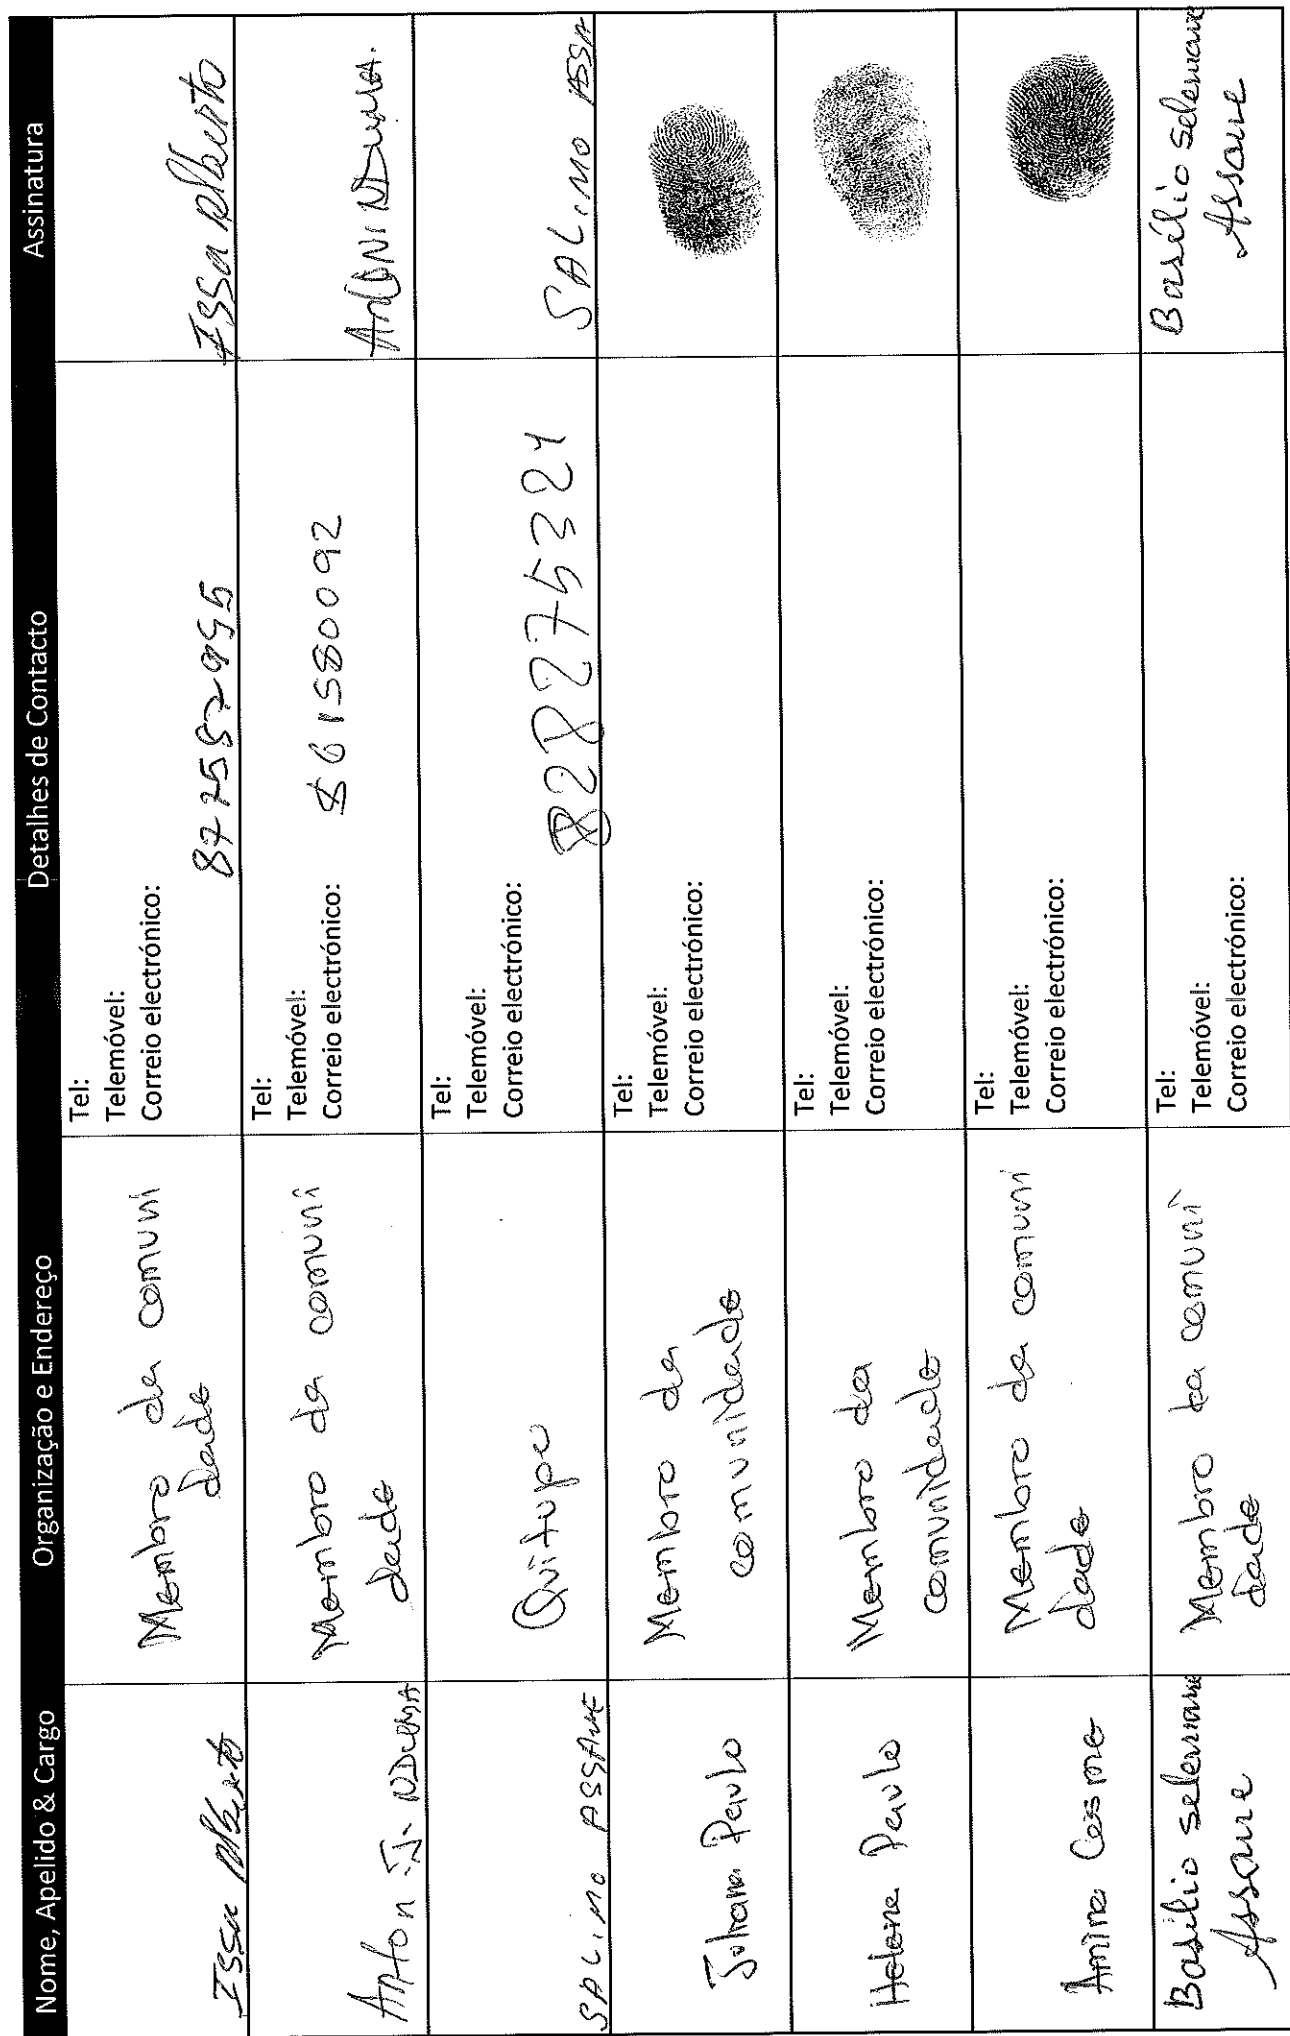 Nome, Apelido & Cargo
Organização e Endereço
Detalhes de Contacto
Assinatura
Issa Alberto
Membro da comuni
dade
Tel:
Telemóvel:
Correio electrónico:
Issa Alberto
Anton J. NDUMA
Membro da comuni
dade
Tel:
Telemóvel:
Correio electrónico:
861580092
SALIMO ASSANE
Quitupo
Tel:
Telemóvel:
Correio electrónico:
828275324
SALIMO ASSA
Juliana Paulo
Membro da
comunidade
Tel:
Telemóvel:
Correio electrónico:
Helena Paulo
Membro da
comunidade
Tel:
Telemóvel:
Correio electrónico:
Amina Cosme
Membro da comuni
dade
Tel:
Telemóvel:
Correio electrónico:
Basilio selemane
Assane
Membro da comuni
dade
Tel:
Telemóvel:
Correio electrónico:
Basílio selemane
Assane